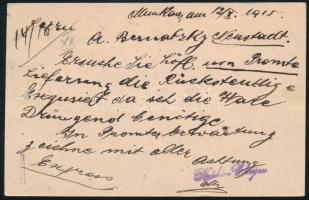 Munkacs, am 12/X. 1915.
A. Bernatsky Neustadt.
Ersuche Sie höfl. um Promte
Lieferung die Rückständige
da ich die Ware
Dringend benötige
In Promter Erwartung
zeichne mit aller
Achtung
Express